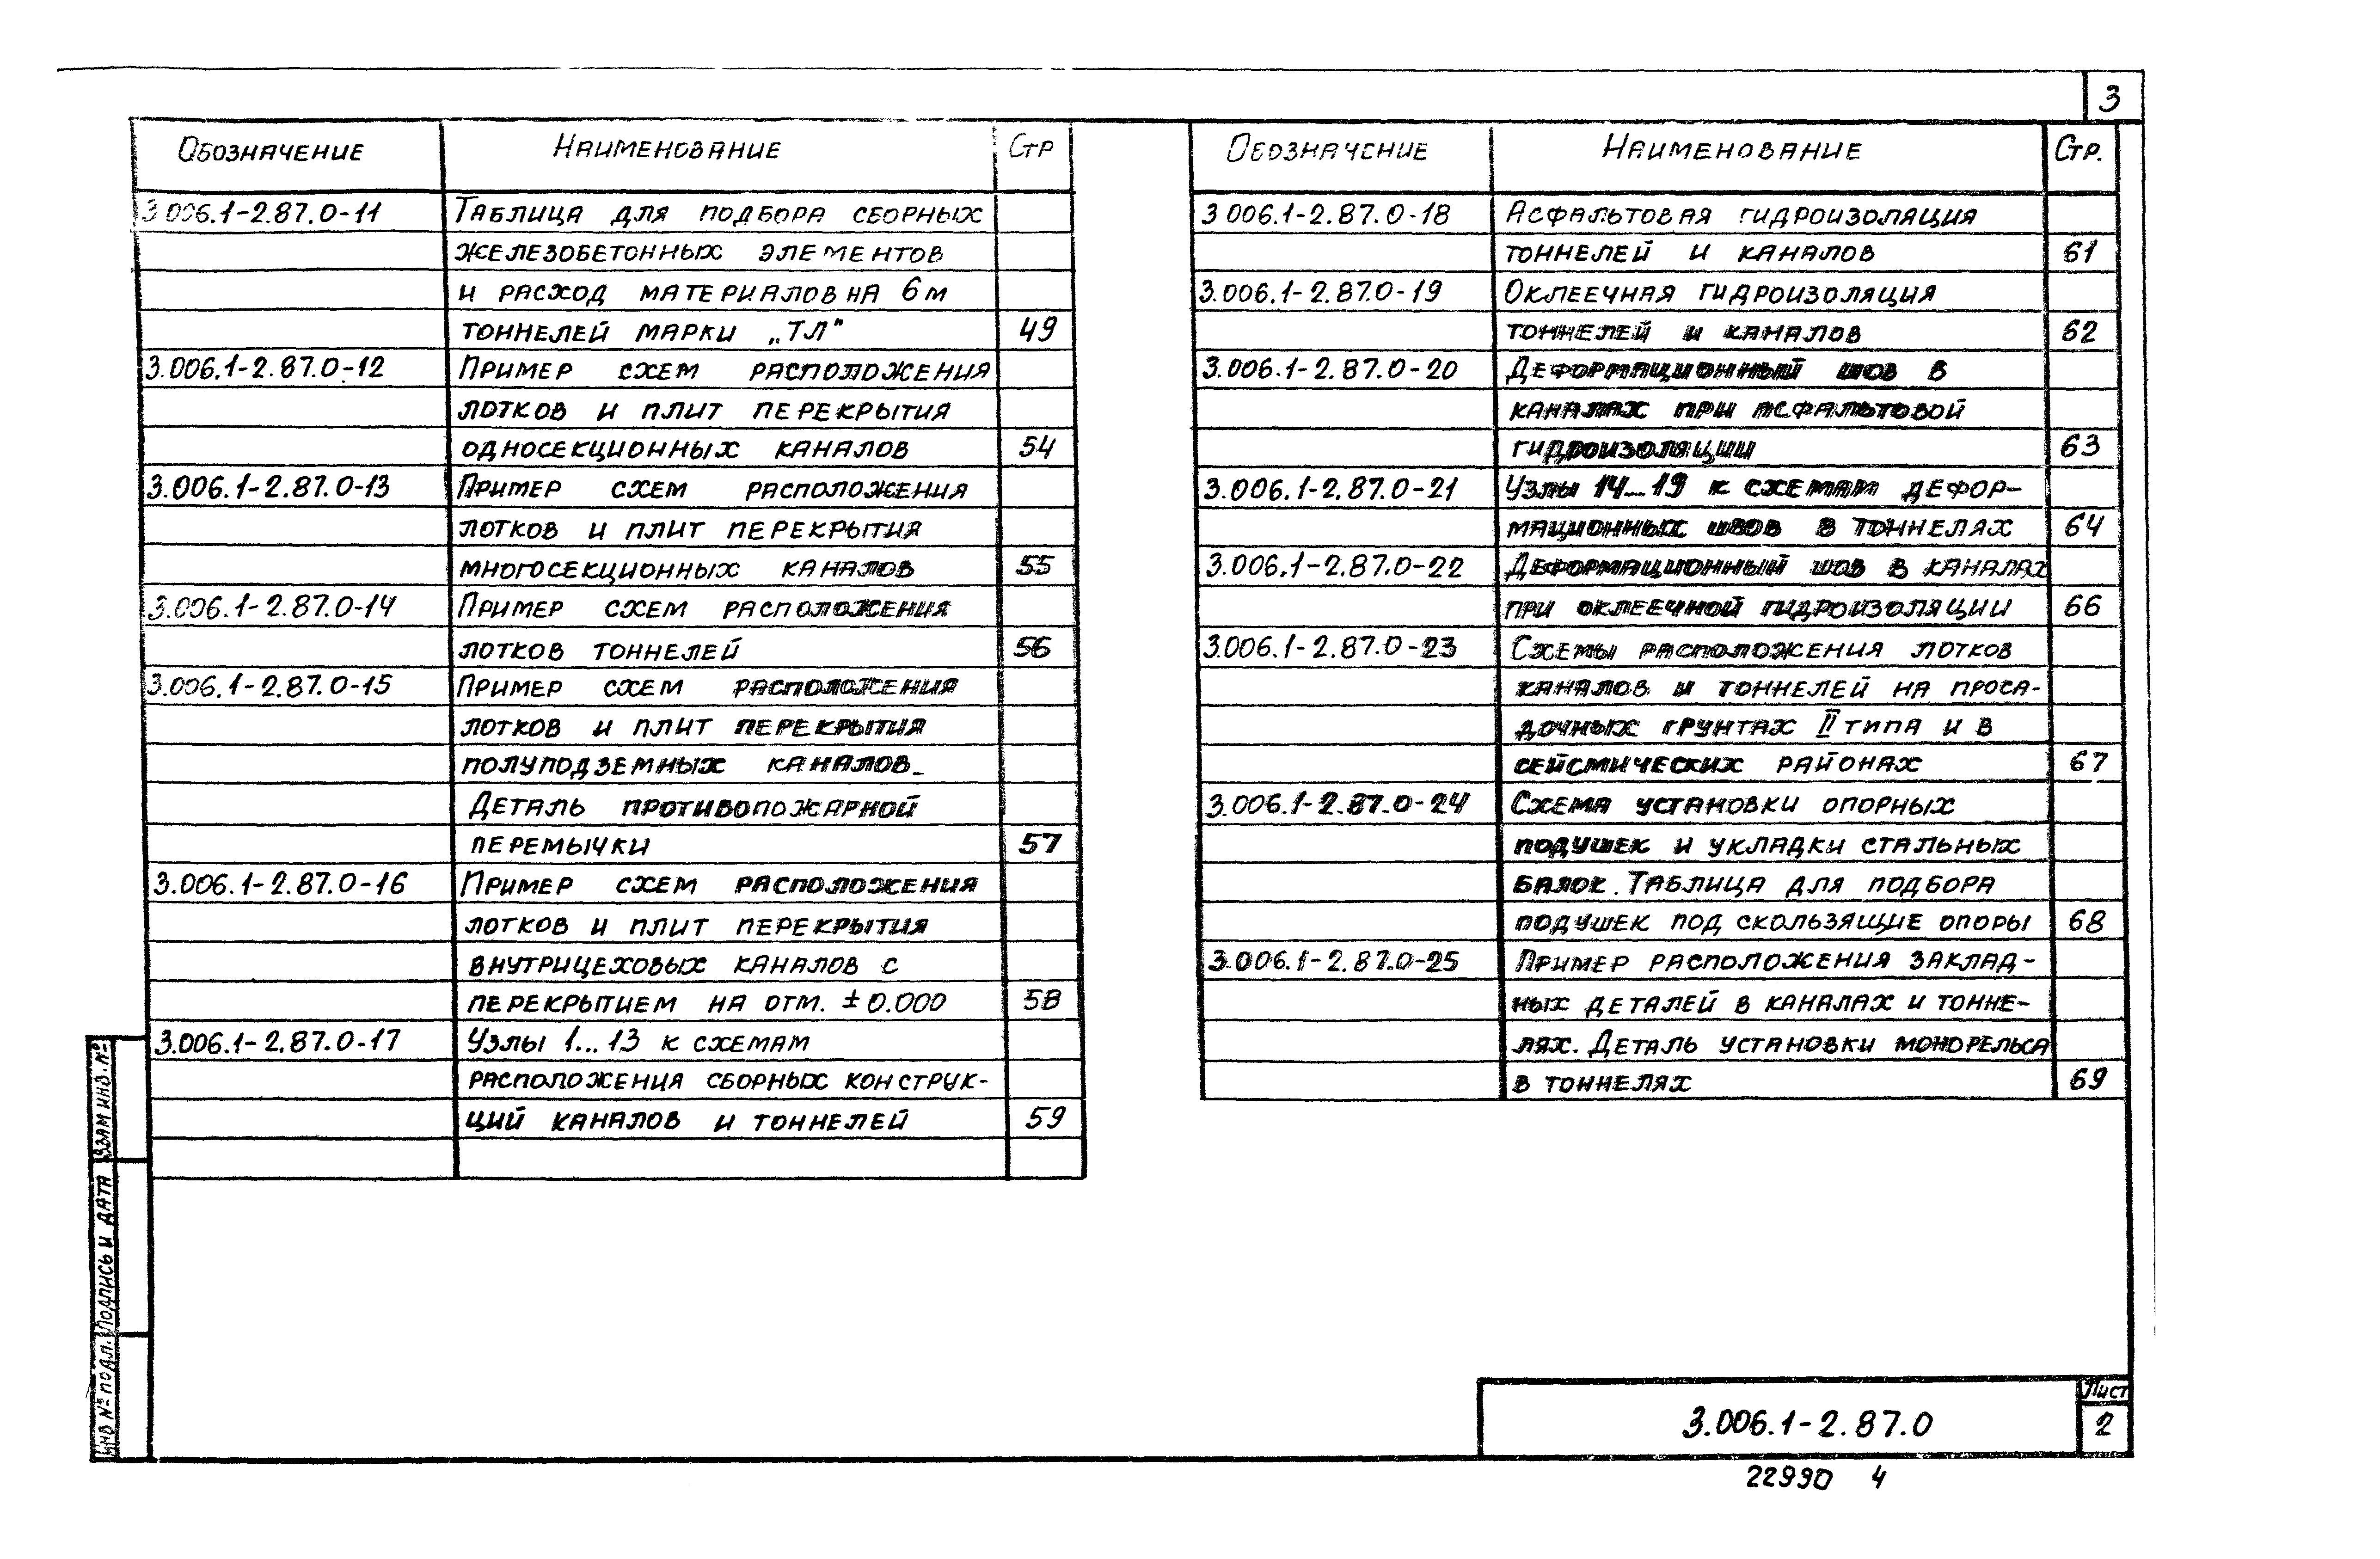 3
Обозначение Наименование Стр
3.006.1-2.87.0-11 Таблица для подбора сборных
железобетонных элементов
и расход материалов на 6м
тоннелей марки „ТЛ" 49
3.006.1-2.87.0-12 Пример схем расположения
лотков и плит перекрытия
односекционных каналов 54
3.006.1-2.87.0-13 Пример схем расположения
лотков и плит перекрытия
многосекционных каналов 55
3.006.1-2.87.0-14 Пример схем расположения
лотков тоннелей 56
3.006.1-2.87.0-15 Пример схем расположения
лотков и плит перекрытия
полуподземных каналов.
Деталь противопожарной
перемычки 57
3.006.1-2.87.0-16 Пример схем расположения
лотков и плит перекрытия
внутрицеховых каналов с
перекрытием на отм. ±0.000 58
3.006.1-2.87.0-17 Узлы 1...13 к схемам
расположения сборных конструк-
ций каналов и тоннелей 59
Обозначение Наименование Стр.
3.006.1-2.87.0-18 Асфальтовая гидроизоляция
тоннелей и каналов 61
3.006.1-2.87.0-19 Оклеечная гидроизоляция
тоннелей и каналов 62
3.006.1-2.87.0-20 Деформационный шов в
каналах при асфальтовой
гидроизоляции 63
3.006.1-2.87.0-21 Узлы 14...19 к схемам дефор-
мационных швов в тоннелях 64
3.006.1-2.87.0-22 Деформационный шов в каналах
при оклеечной гидроизоляции 66
3.006.1-2.87.0-23 Схемы расположения лотков
каналов и тоннелей на проса-
дочных грунтах II типа и в
сейсмических районах 67
3.006.1-2.87.0-24 Схема установки опорных
подушек и укладки стальных
балок. Таблица для подбора
подушек под скользящие опоры 68
3.006.1-2.87.0-25 Пример расположения заклад-
ных деталей в каналах и тонне-
лях. Деталь установки монорельса
в тоннелях 69
Взам инв. №
Подпись и дата
Инв № подл.
3.006.1-2.87.0
Лист
2
22990 4